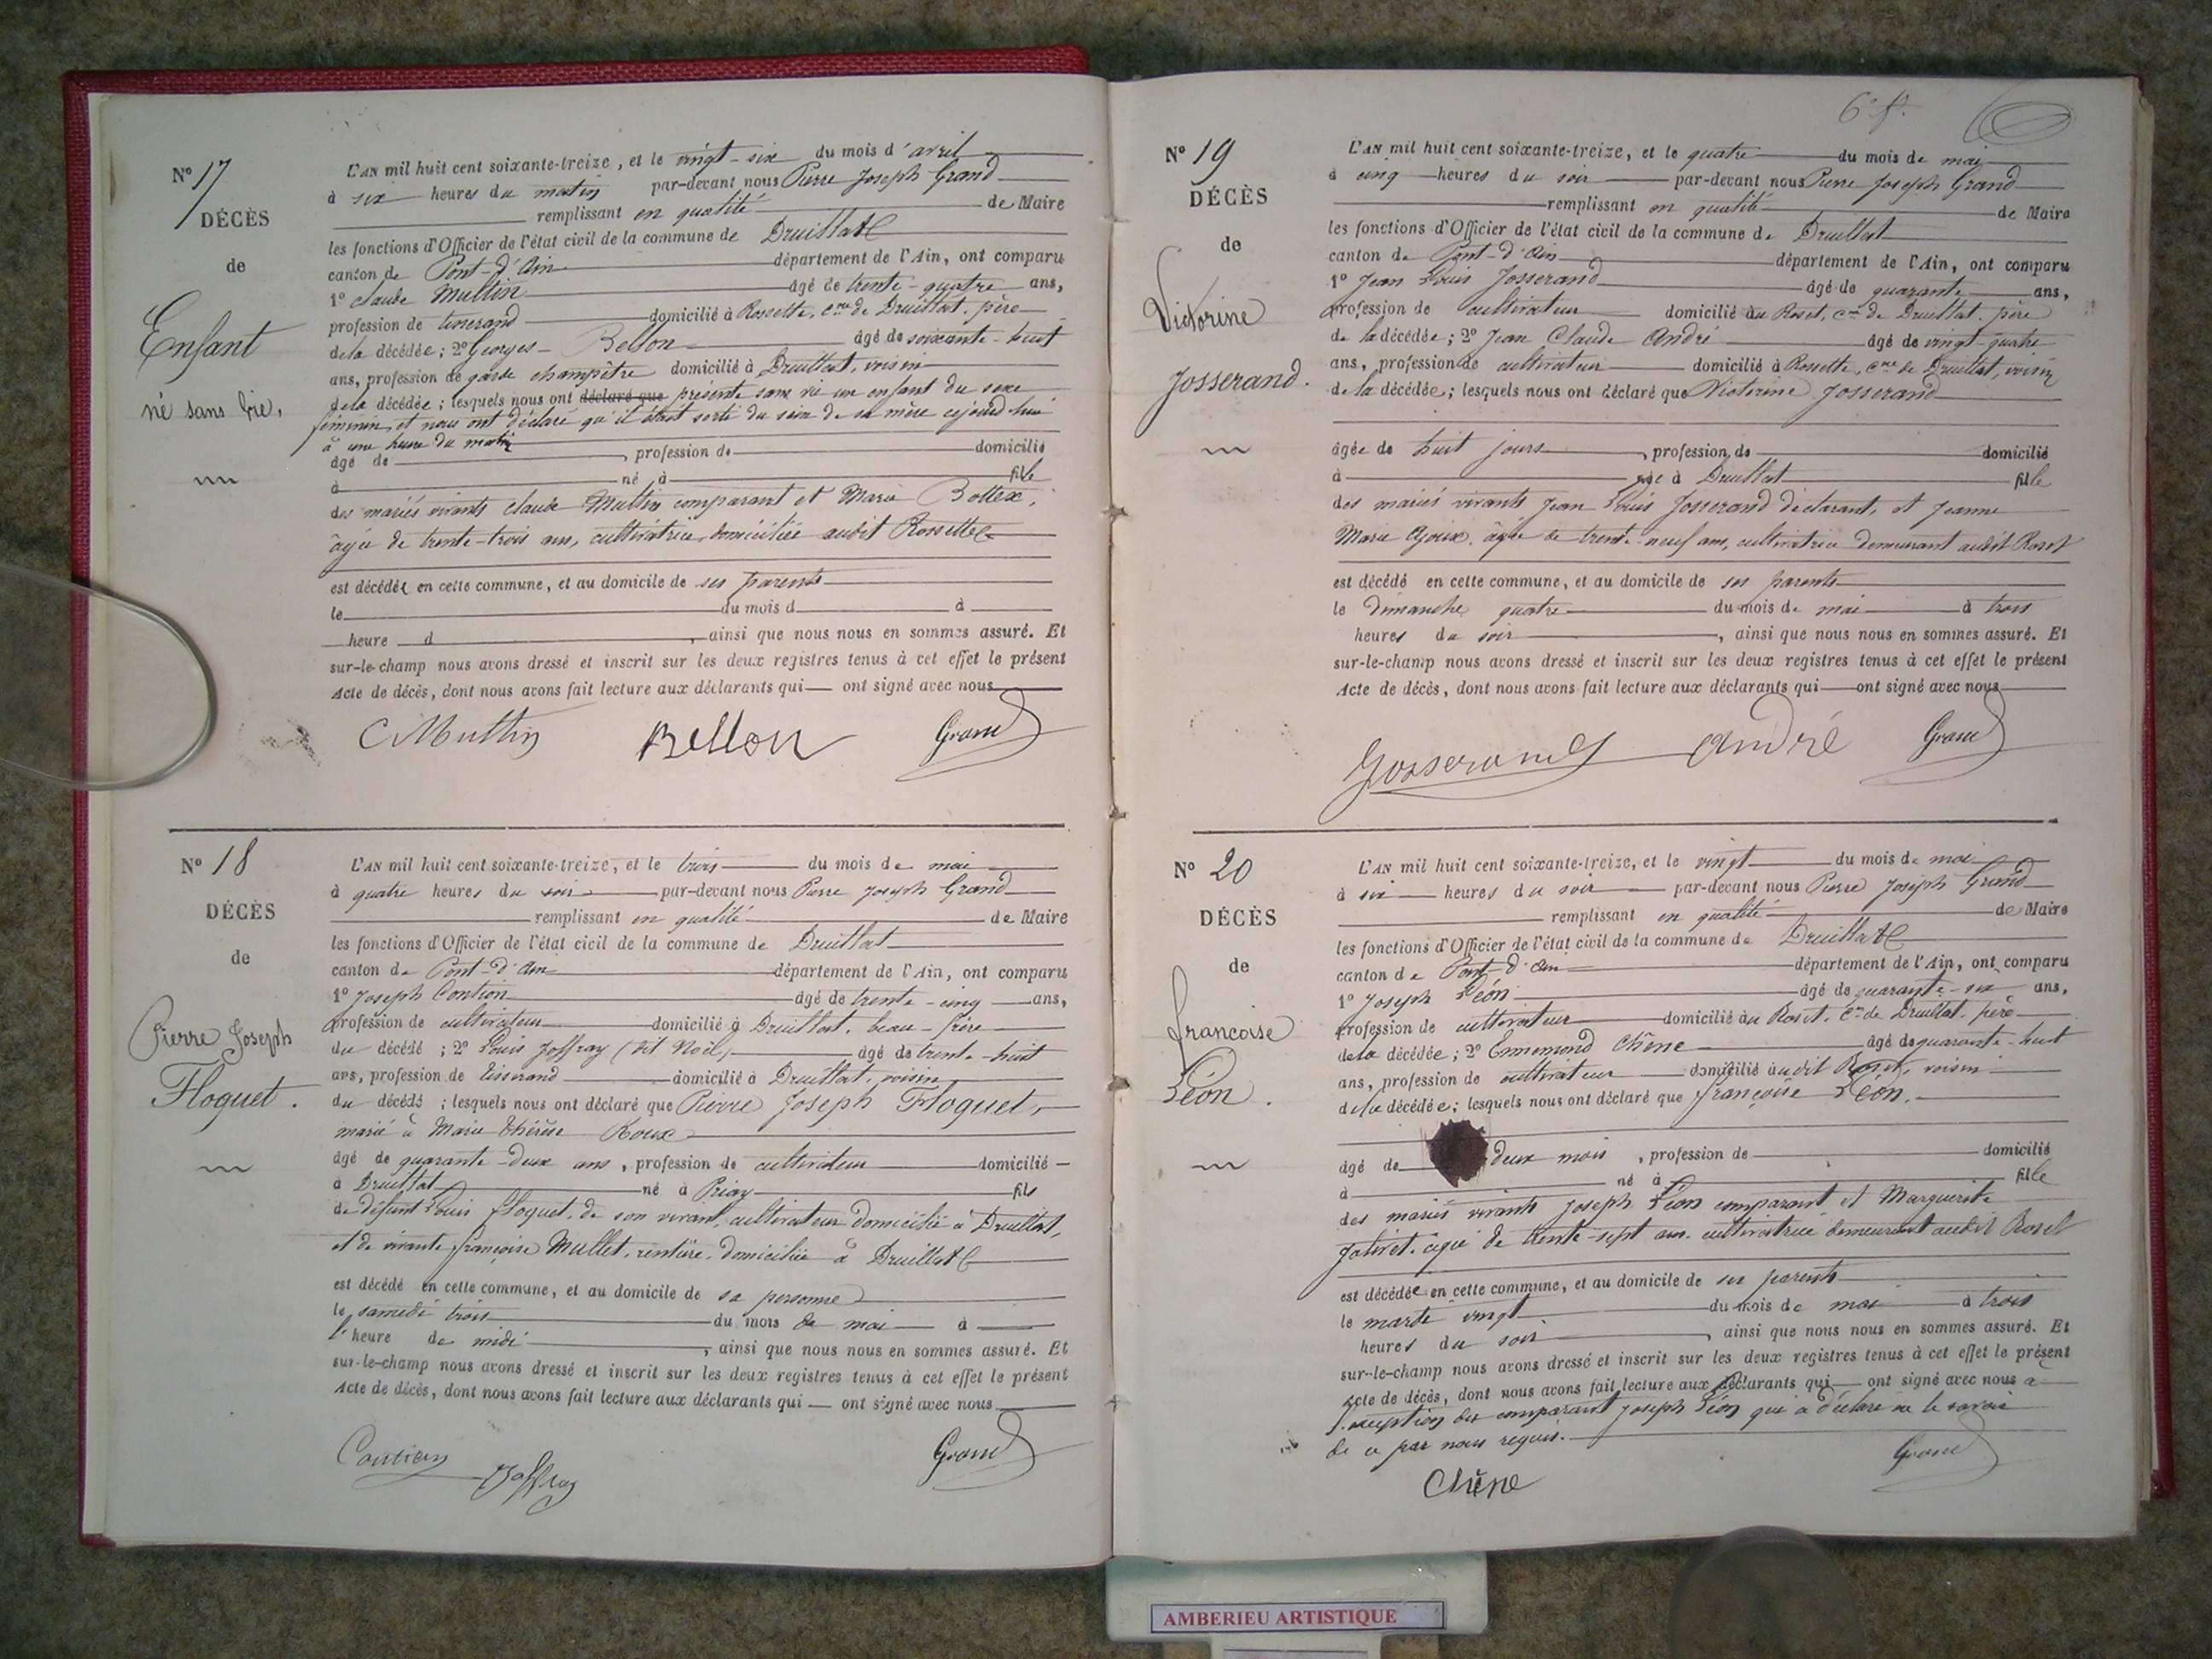 N° 17
DÉCÈS
de
Enfant
né sans vie,
L'AN mil huit cent soixante-treize, et le vingt-six du mois d'avril
à six heures du matin par-devant nous Pierre Joseph Grand
remplissant en qualité de Maire
les fonctions d'Officier de l'état civil de la commune de Druillat
canton de Pont-d'Ain département de l'Ain, ont comparu
1° Claude Multin âgé de trente-quatre ans,
profession de tisserand domicilié à Rossette, cne de Druillat, père
de la décédée; 2° Georges Bellon âgé de soixante-huit
ans, profession de garde champêtre domicilié à Druillat, voisin
de la décédée; lesquels nous ont déclaré que présenté sans vie un enfant du sexe
féminin, et nous ont déclaré qu'il était sorti du sein de sa mère cejourd'hui
à une heure du matin
âgé de , profession de domicilié
à né à fille
des mariés vivants Claude Multin comparant et Marie Bottex,
âgée de trente-trois ans, cultivatrice, domiciliée audit Rossette
est décédée en cette commune, et au domicile de ses parents
le du mois d à
heure d , ainsi que nous nous en sommes assuré. Et
sur-le-champ nous avons dressé et inscrit sur les deux registres tenus à cet effet le présent
Acte de décès, dont nous avons fait lecture aux déclarants qui ont signé avec nous
C Multin Bellon Grand
N° 18
DÉCÈS
de
Pierre Joseph
Floquet.
L'AN mil huit cent soixante-treize, et le trois du mois de mai
à quatre heures du soir par-devant nous Pierre Joseph Grand
remplissant en qualité de Maire
les fonctions d'Officier de l'état civil de la commune de Druillat
canton de Pont-d'Ain département de l'Ain, ont comparu
1° Joseph Contion âgé de trente-cinq ans,
profession de cultivateur domicilié à Druillat, beau-frère
du décédé; 2° Louis Joffray (dit Noël) âgé de trente-huit
ans, profession de tisserand domicilié à Druillat, voisin
du décédé; lesquels nous ont déclaré que Pierre Joseph Floquet,
marié à Marie Thérèse Roux
âgé de quarante-deux ans, profession de cultivateur domicilié
à Druillat né à Priay fils
de défunt Louis Floquet, de son vivant, cultivateur domicilié à Druillat,
et de vivante françoise Mullet, rentière, domiciliée à Druillat
est décédé en cette commune, et au domicile de sa personne
le samedi trois du mois de mai à
l'heure de midi , ainsi que nous nous en sommes assuré. Et
sur-le-champ nous avons dressé et inscrit sur les deux registres tenus à cet effet le présent
Acte de décès, dont nous avons fait lecture aux déclarants qui ont signé avec nous
Joffray Grand
6e f.
N° 19
DÉCÈS
de
Victorine
Josserand.
L'AN mil huit cent soixante-treize, et le quatre du mois de mai
à cinq heures du soir par-devant nous Pierre Joseph Grand
remplissant en qualité de Maire
les fonctions d'Officier de l'état civil de la commune de Druillat
canton de Pont-d'Ain département de l'Ain, ont comparu
1° Jean Louis Josserand âgé de quarante ans,
profession de cultivateur domicilié au Roset, cne de Druillat, père
de la décédée; 2° Jean Claude André âgé de vingt-quatre
ans, profession de cultivateur domicilié à Rossette, cne de Druillat, voisin
de la décédée; lesquels nous ont déclaré que Victorine Josserand
âgée de huit jours, profession de domicilié
à née à Druillat fille
des mariés vivants Jean Louis Josserand déclarant, et Jeanne
Marie âgée de trente-neuf ans, cultivatrice demeurant audit Roset
est décédé en cette commune, et au domicile de ses parents
le dimanche quatre du mois de mai à trois
heures du soir , ainsi que nous nous en sommes assuré. Et
sur-le-champ nous avons dressé et inscrit sur les deux registres tenus à cet effet le présent
Acte de décès, dont nous avons fait lecture aux déclarants qui ont signé avec nous
Josserand André Grand
N° 20
DÉCÈS
de
françoise
Léon.
L'AN mil huit cent soixante-treize, et le vingt du mois de mai
à six heures du soir par-devant nous Pierre Joseph Grand
remplissant en qualité de Maire
les fonctions d'Officier de l'état civil de la commune de Druillat
canton de Pont-d'Ain département de l'Ain, ont comparu
1° Joseph Léon âgé de quarante-six ans,
profession de cultivateur domicilié au Roset, cne de Druillat, père
de la décédée; 2° Ennemond Chêne âgé de quarante-huit
ans, profession de cultivateur domicilié audit Roset, voisin
de la décédée; lesquels nous ont déclaré que françoise Léon.
âgé de deux mois, profession de domicilié
à né à fille
des mariés vivants Joseph Léon comparant et Marguerite
âgée de trente-sept ans, cultivatrice demeurant audit Roset
est décédée en cette commune, et au domicile de ses parents
le mardi vingt du mois de mai à trois
heures du soir , ainsi que nous nous en sommes assuré. Et
sur-le-champ nous avons dressé et inscrit sur les deux registres tenus à cet effet le présent
Acte de décès, dont nous avons fait lecture aux déclarants qui ont signé avec nous à
l'exception du comparant Joseph Léon qui a déclaré ne le savoir
de ce par nous requis.
Chêne Grand
AMBERIEU ARTISTIQUE